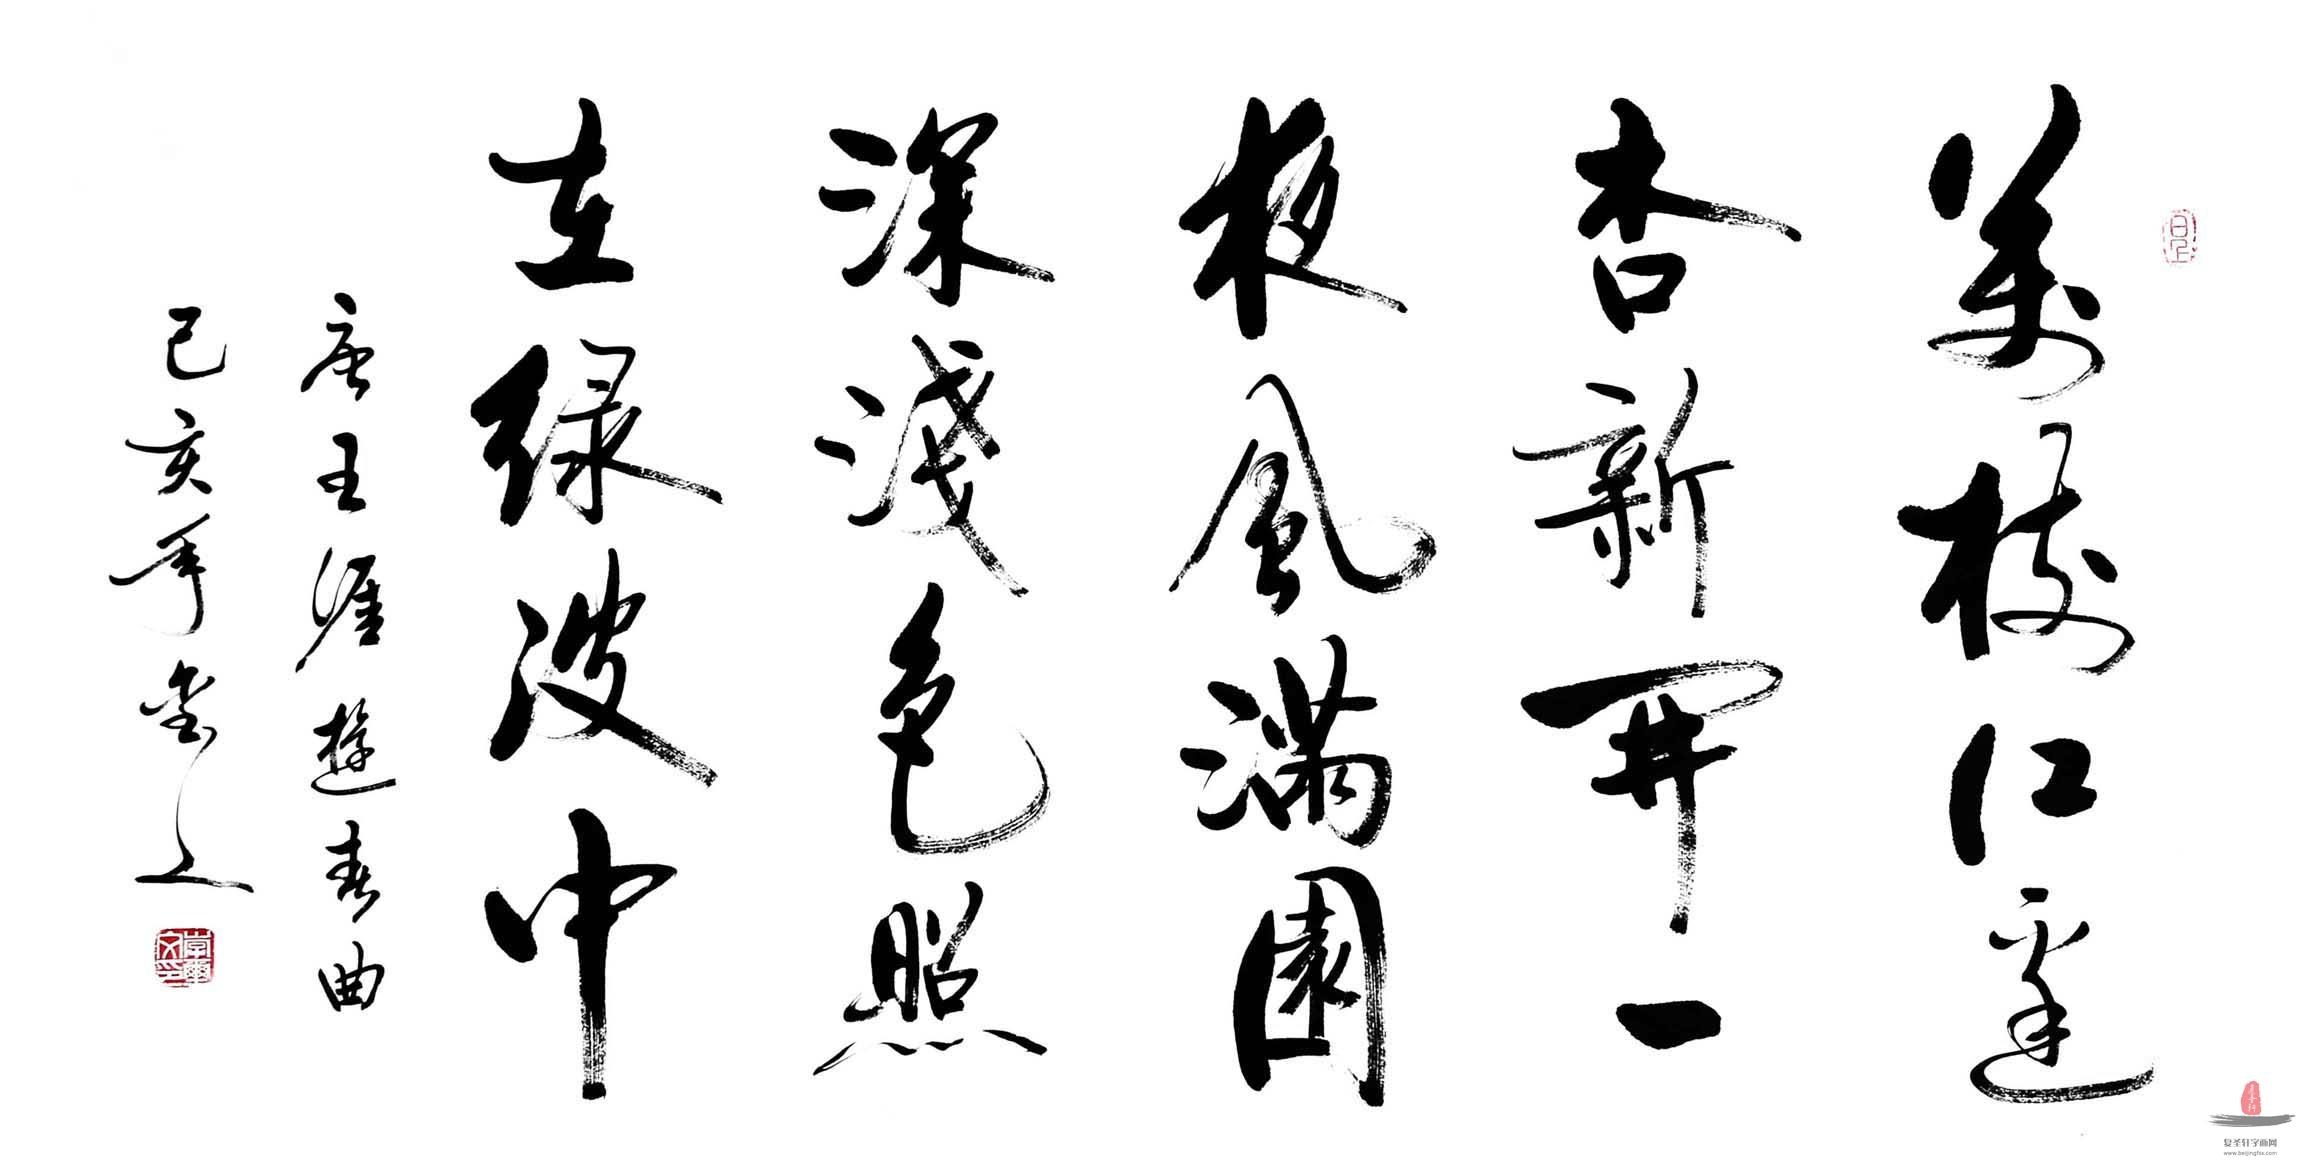 萬樹江邊
杏新開一
夜風滿園
深淺色照
在綠波中
唐王涯遊春曲
己亥年
复圣轩字画网
www.beijingfsx.com